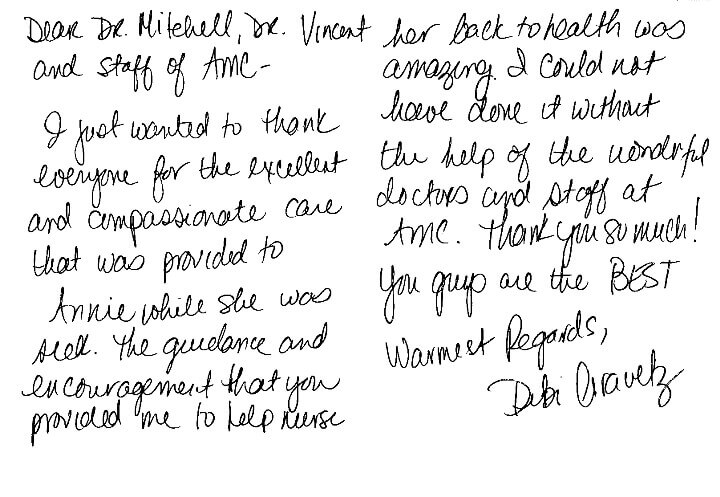 Dear Dr. Mitchell, Dr. Vincent
and staff of AMC-
I just wanted to thank
everyone for the excellent
and compassionate care
that was provided to
Annie while she was
sick. The guidance and
encouragement that you
provided me to help nurse
her back to health was
amazing. I could not
have done it without
the help of the wonderful
doctors and staff at
AMC. Thank you so much!
You guys are the BEST
Warmest Regards,
Debi